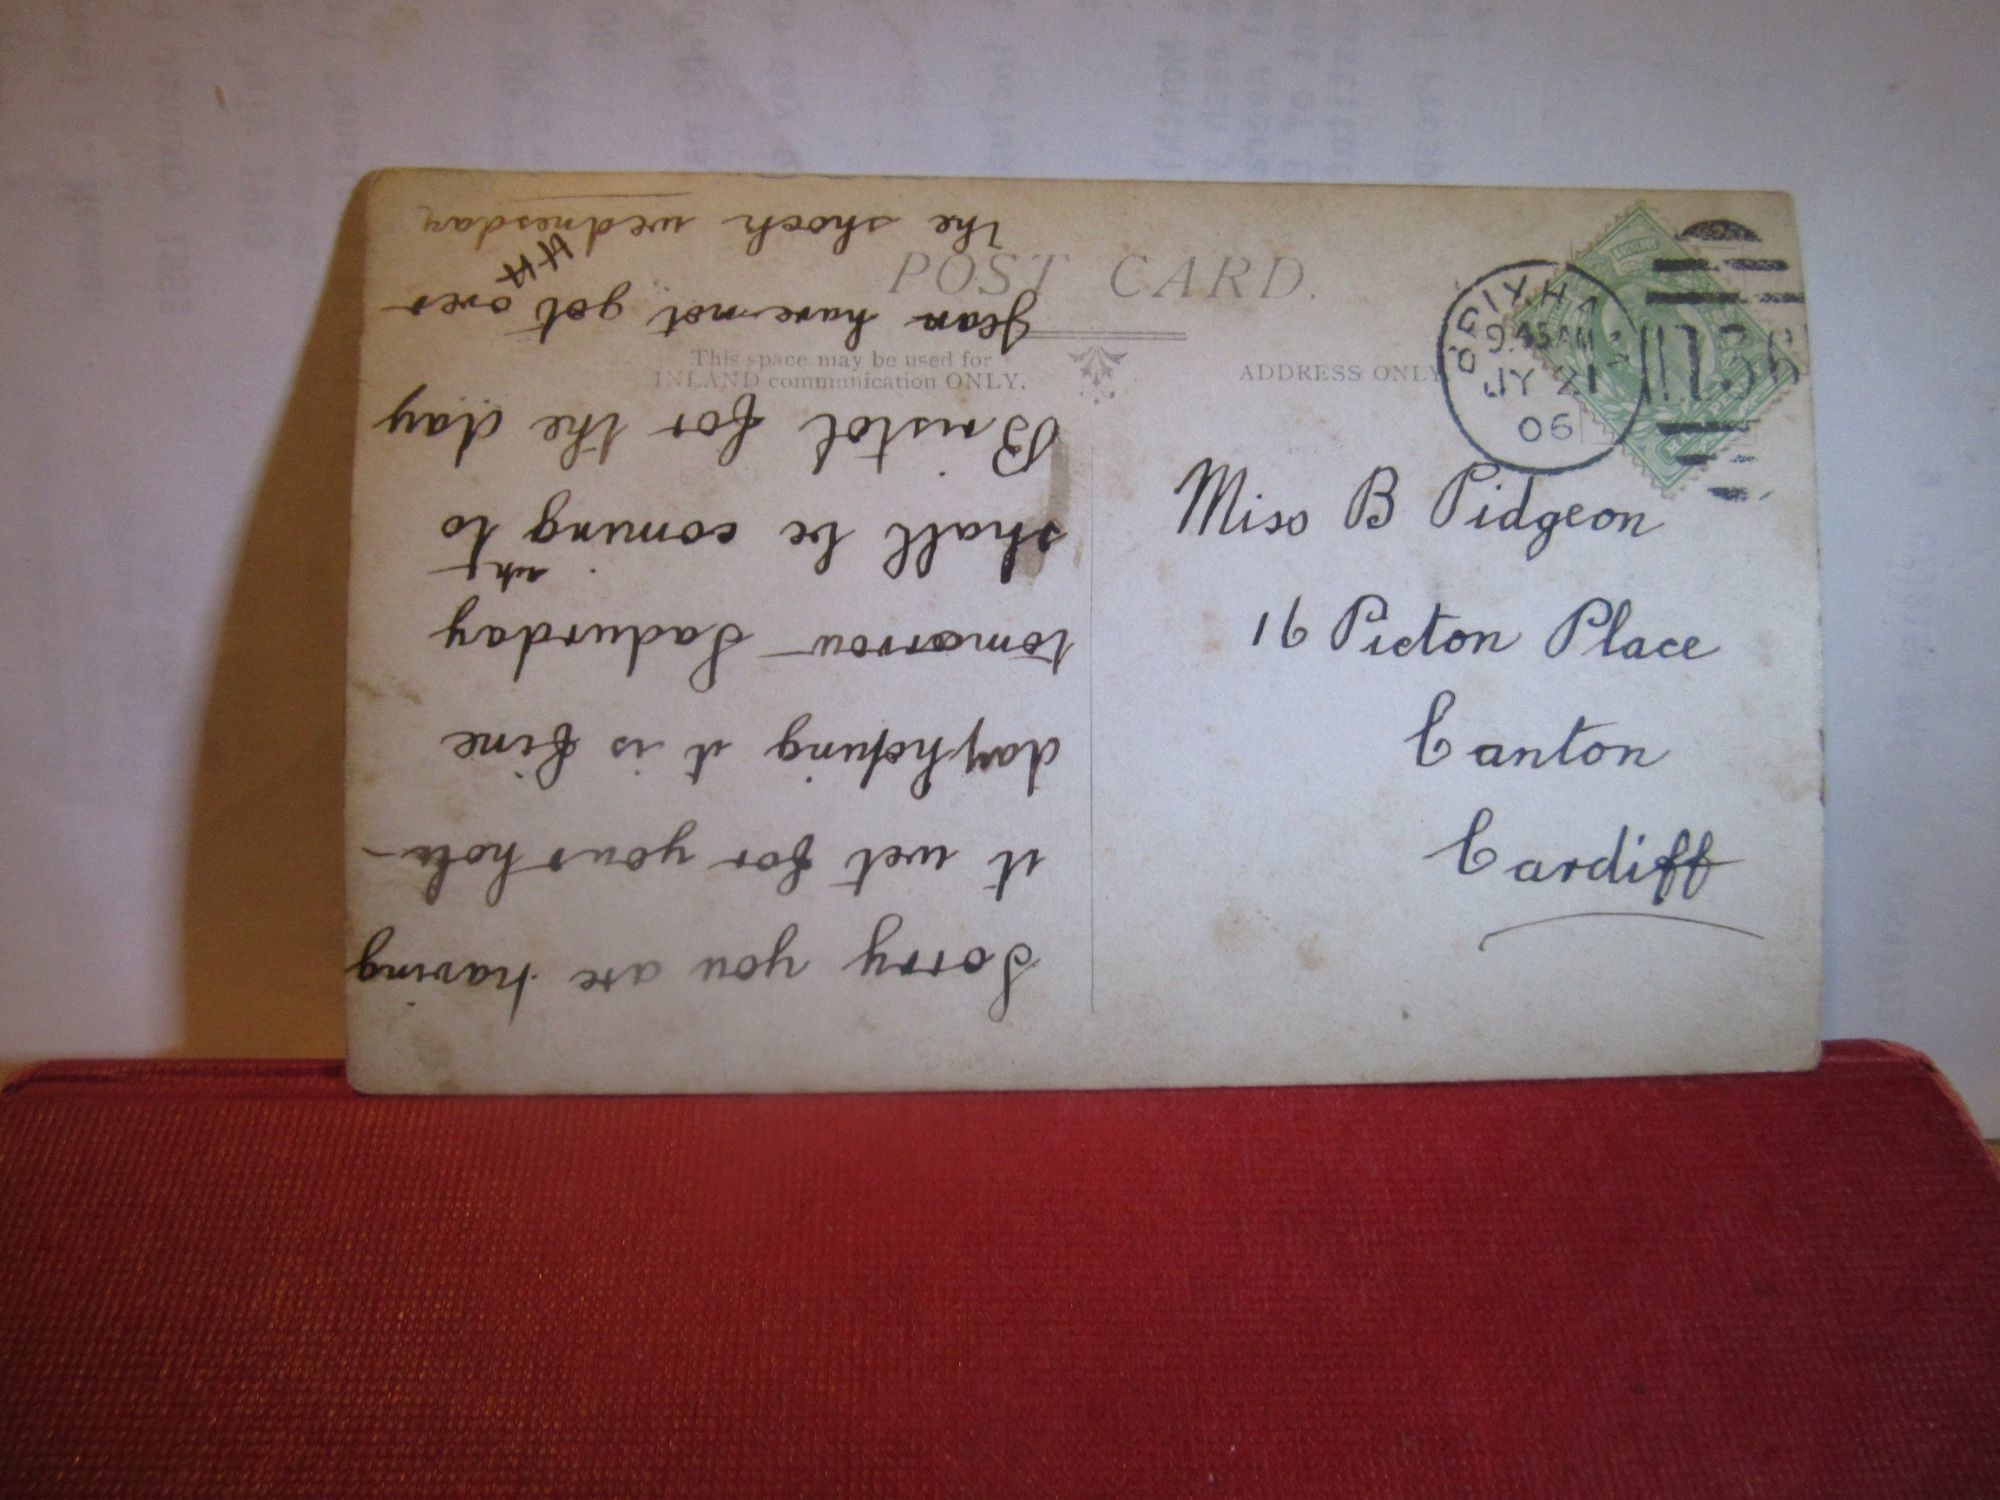 POST CARD.
This space may be used for
INLAND communication ONLY.
ADDRESS ONLY
BRIXHAM
9.45 AM
JY 2
06
Miss B Pidgeon
16 Picton Place
Canton
Cardiff
Sorry you are having
it wet for your holi-
day hoping it is fine
tomorrow Sadurday
shall be coming to
Bristol for the day
have not got over
the shock wednesday
HH